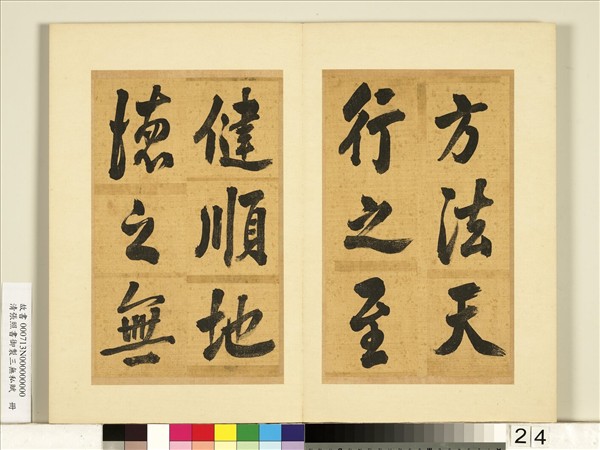 方法天
行之至
健順地
德之無
故書 000713N000000000
清張照書御製三無私賦 冊
24